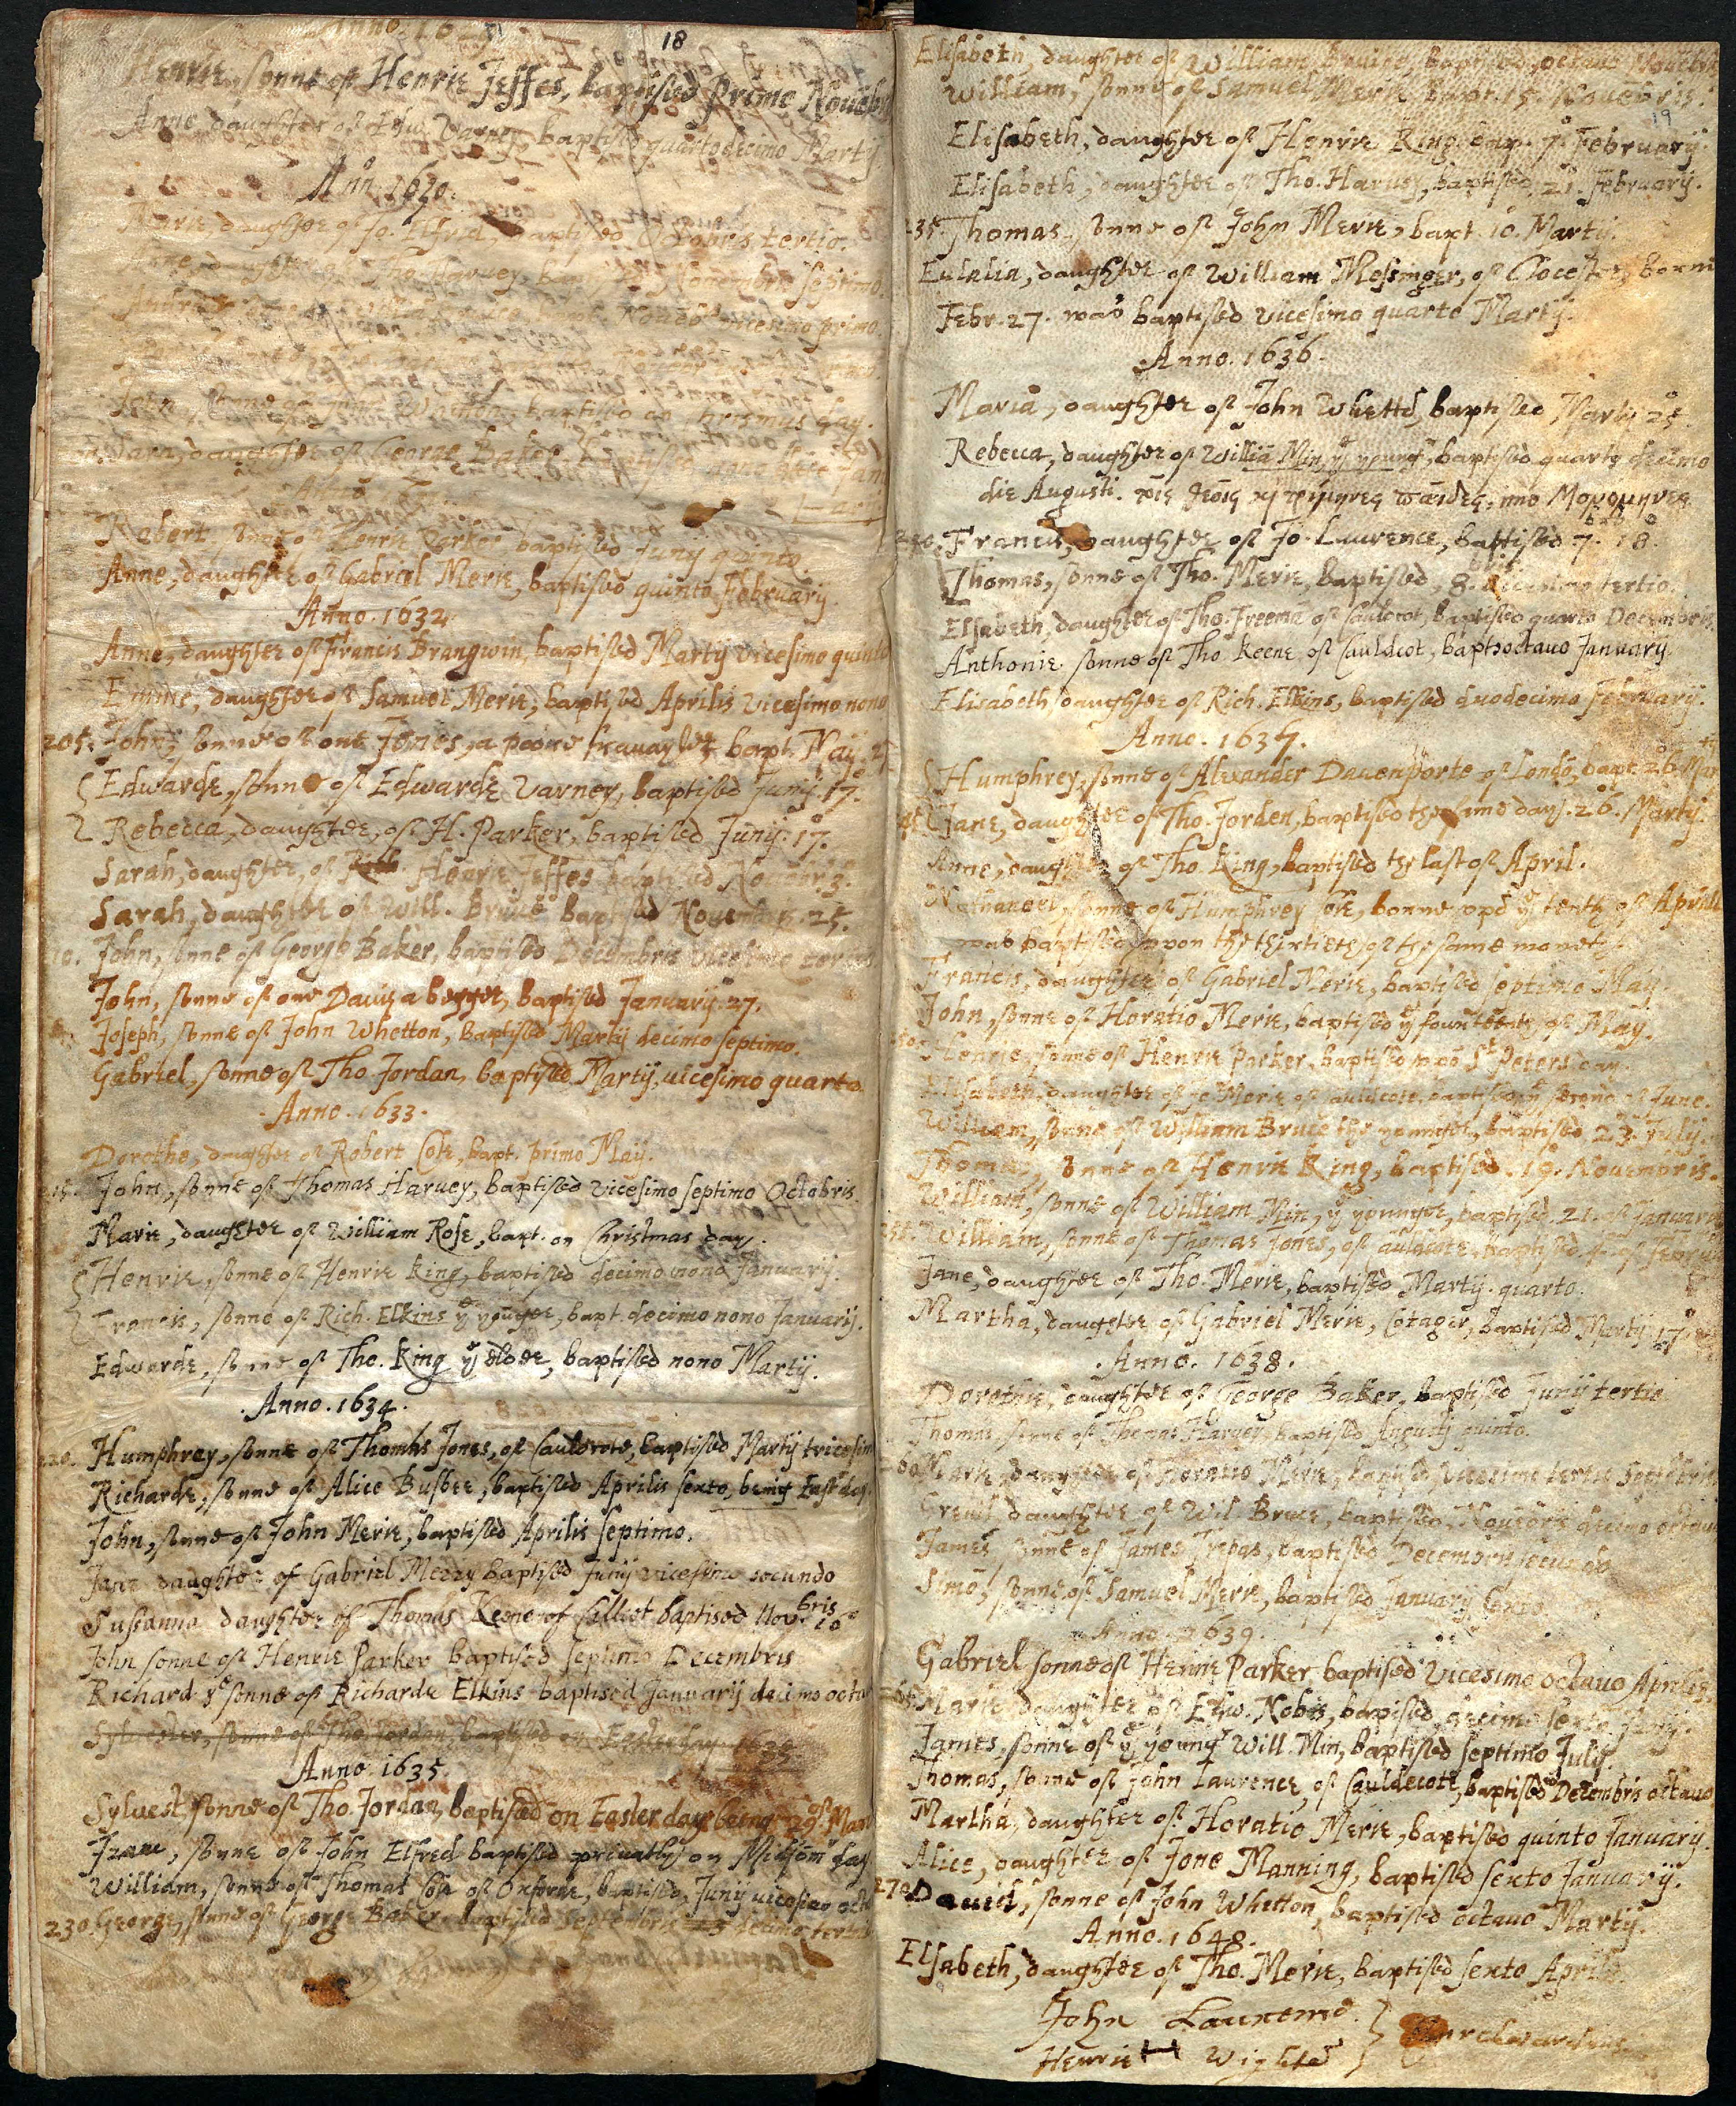 18
Henrie, sonne of Henrie Jeffes, baptised primo Nouēb
Anne daughter of Edw. Varney, baptised quartodecimo Martij
Ann. 1630.
Marie, daughter of Jo. Elfred, baptised Octobris tertio.
Anne, daughter of Tho. Haruey, bapt. Nouembris septimo.
vicesimo primo
John, sonne of John Whetton, baptised on Chrismus day.
Sara, daughter of George Baker
Robert, sonne of Henrie Parker baptised Junij quinto.
Anne, daughter of Gabriel Merie, baptised quinto Februarij.
Anno. 1632
Anne, daughter of Francis Brangwin, baptised Martij vicesimo quinto
Emme, daughter of Samuel Merie, baptised Aprilis vicesimo nono
205. John, sonne of one Jones, a poore trauayler, bapt. Maij. 27
Edwarde, sonne of Edwarde Varney, baptised Junij. 17.
Rebecca, daughter, of H. Parker, baptised Junij. 17.
Sarah, daughter, of Henrie Jeffes baptised Nouebr. 3.
Sarah, daughter of Will. Bruce baptised Nouembris. 25.
10. John, sonne of George Baker, baptised Decembris vicesimo
John, sonne of one Dauis a begger, baptised Januarij. 27.
Joseph, sonne of John Whetton, baptised Martij decimo septimo.
Gabriel, sonne of Tho. Jordan, baptised Martij, vicesimo quarto.
Anno. 1633.
Dorothe, daughter of Robert Cole, bapt. primo Maij.
215. John, sonne of Thomas Haruey, baptised vicesimo septimo Octobris.
Marie, daughter of William Rose, bapt. on Christmas day.
Henrie, sonne of Henrie King, baptised decimo nono Januarij.
Francis, sonne of Rich. Elkins yͤ yoūger, bapt. decimo nono Januarij.
Edwarde, sonne of Tho. King yͤ elder, baptised nono Martij.
Anno. 1634.
220. Humphrey, sonne of Thomas Jones, of Cauldcote, baptised Martij tricesim
Richarde, sonne of Alice Busbee, baptised Aprilis sexto, being East day.
John, sonne of John Merie, baptised Aprilis septimo.
Jane daughter of Gabriel Merry baptised Junij vicesimo secundo
Susanna daughter of Thomas Keene of Callcot baptised Novᵇʳⁱˢ 16°
John sonne of Henrie Parker baptised septimo Decembris
Richard yͤ sonne of Richarde Elkins baptised Januarij decimo octa
Syluester, sonne of Tho. Jordan, baptised on Easterday 1635
Anno. 1635.
Syluest, sonne of Tho. Jordan, baptised on Easter day being 29 of Mar
Isaac, sonne of John Elfred baptised priuatly on Midsōm day
William, sonne of Thomas Cose of Oxforde, baptised, Junij vicesimo octa
230. George, sonne of George Baker, baptised Septembris decimo tertio
Elisabeth, daughter of William Bruice, baptised, octauo Nouēbris
William, sonne of Samuel Merie bapt. 15. Nouēbris.
19
Elisabeth, daughter of Henrie King bap. 7. February.
Elisabeth, daughter of Tho. Haruey, baptised, 21. February.
235 Thomas, sonne of John Merie, bapt. 10. Martij.
Eulalia, daughter of William Messinger, of Glocester, borne
Febr. 27. was baptised vicesimo quarto Martij.
Anno. 1636.
Maria, daughter of John Whettō, baptised Martij 25.
Rebecca, daughter of Williā Min, yͤ young, baptised quarto decimo
die Augusti.
240. Francis, daughter of Jo. Laurence, baptised 7. 18.
Thomas, sonne of Tho. Merie, baptised, 8. vicesimo tertio.
Elsabeth, daughter of Tho. Freemā of Cauldcot, baptised quarto Decembris
Anthonie sonne of Tho Keene of Cauldcot, bapt. octauo January
Elisabeth, daughter of Rich. Elkins, baptised duodecimo February.
Anno. 1637.
Humphrey, sonne of Alexander Dauenporte of Londō, bapt. 26. Mar
45 Jane, daughter of Tho. Jorden, baptised the same day. 26. Martij.
Anne, daughter of Tho. King, baptised the last of April.
Nathaneel, sonne of Humphrey borne vpō yͤ tenth of Aprill
was baptised vpon the thirtieth of the same moneth.
Francis, daughter of Gabriel Merie, baptised septimo Maij.
John, sonne of Horatio Merie, baptised yͤ fourteenth of May.
250. Henrie, sonne of Henrie Parker, baptised vpō Sᵗ Peters day.
Elisabeth, daughter of Jo Merie of Cauldcote, baptised yͤ second of June.
William, sonne of William Bruce the younger, baptised 23. July.
Thomas, sonne of Henrie King, baptised. 19. Nouembris.
William, sonne of William Min, yͤ younger, baptised. 21. of Januarie
255. William, sonne of Thomas Jones, of Cauldcote, baptised. 4. of Februa
Jane, daughter of Tho. Merie, baptised Martij. quarto.
Martha, daughter of Gabriel Merie, Cotager, baptised Martij 17.
Anno. 1638.
Dorothie, daughter of George Baker, baptised Junij tertio
Thomas, sonne of Thomas Haruey, baptised Augusti quinto.
Marie, daughter of Horatio Merie, baptised, vicesimo tertio Septēbris
daughter of Wil. Bruce, baptised, Nouēbris decimo octauo
James sonne of James Tribas, baptised Decembris secundo
Simō, sonne of Samuel Merie, baptised January sexto
Anno. 1639.
Gabriel sonne of Henrie Parker baptised vicesimo octauo Aprilis.
65. Marie daughter of Edw. Nobis, baptised, decimo sexto Junij.
James, sonne of yͤ young Will. Min, baptised septimo July.
Thomas, sonne of John Laurence, of Cauldecote, baptised Decembris octauo
Martha, daughter of Horatio Merie, baptised quinto January.
Alice, daughter of Jone Manning, baptised sexto Januarij.
270 Daued, sonne of John Whetton, baptised octauo Martij.
Anno. 1640.
Elsabeth, daughter of Tho. Merie, baptised sexto Aprilis.
John Laurence
Henrie Wighte
Churchwardens